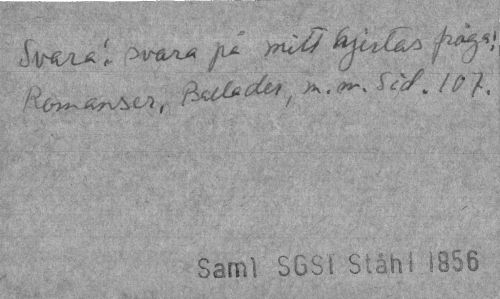 Svara! svara på mitt hjertas fråga!
Romanser, Ballader, m.m. Sid. 107.
Saml SGS1 Ståhl 1856